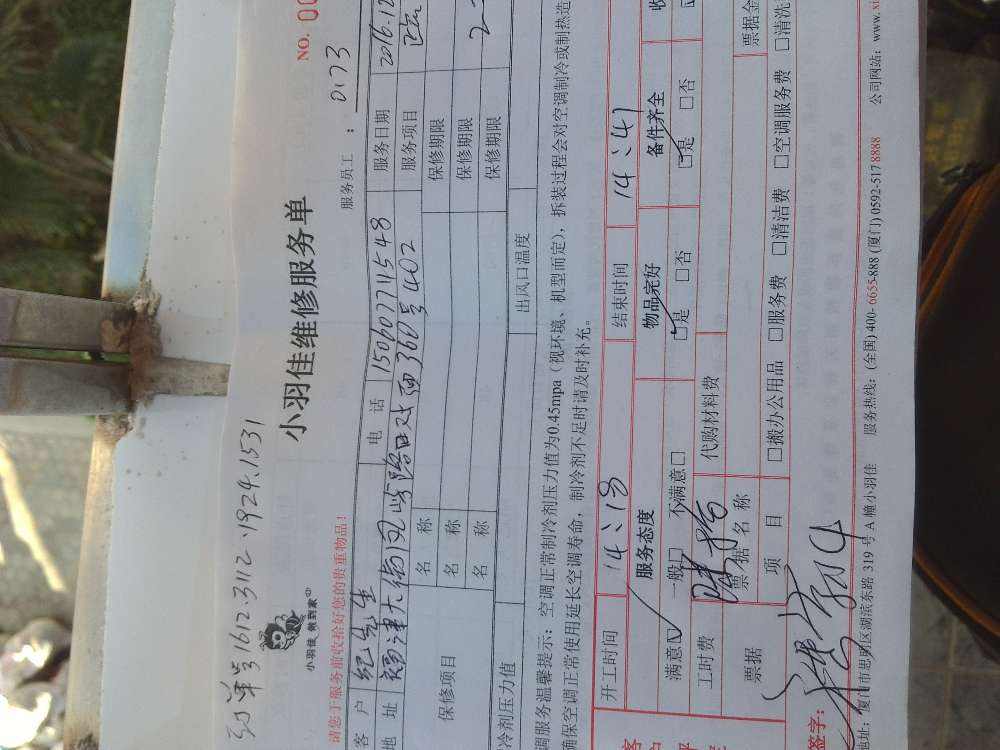 单号1612.3112.1924.1531
NO. 00
小羽佳 做到家
小羽佳维修服务单
请您于服务前收拾好您的贵重物品!
服务员工: 0173
客 户 纪先生 电 话 15060771548 服务日期 2016.12
地 址 福津大街凤屿路口对面360号402 服务项目
保修项目
名 称 保修期限
名 称 保修期限
名 称 保修期限
冷剂压力值 出风口温度
调服务温馨提示:空调正常制冷剂压力值为0.45mpa(视环境、机型而定),拆装过程会对空调制冷或制热造
确保空调正常使用延长空调寿命,制冷剂不足时请及时补充。
开工时间 14:13 结束时间 14:41
服务态度 物品完好 备件齐全 收
满意☑ 一般□ 不满意□ ☑是 □否 ☑是 □否
工时费 代购材料费
票据 票据名称 票据金
项 目 □搬办公用品 □服务费 □清洁费 □空调服务费 □清洗
签字:
地址:厦门市思明区湖滨东路 319 号 A 幢小羽佳 服务热线:(全国) 400-6655-888 (厦门) 0592-5178888 公司网站:www.xi